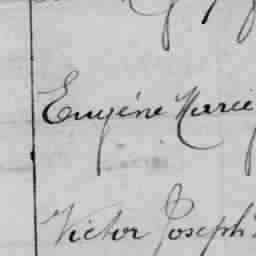 Eugéne Marie
Victor Joseph